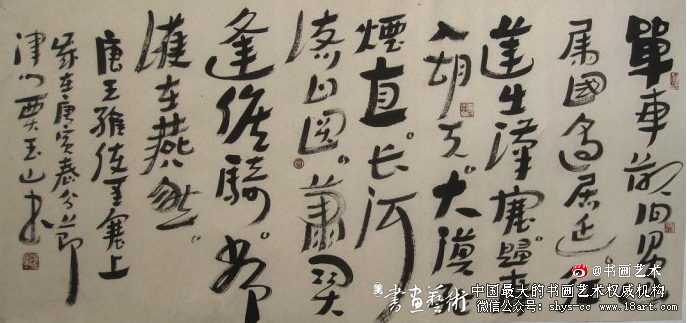 單車欲问邊
属國過居延。征
蓬出漢塞。歸雁
入胡天。大漠孤
煙直。长河
落日圆。萧关
逢候騎。都
護在燕然。
唐王維使至塞上
岁在庚寅春分節
津门玉山书
@书画艺术
書畫藝術
中国最大的书画艺术权威机构
微信公众号：shys-cc www.18art.com